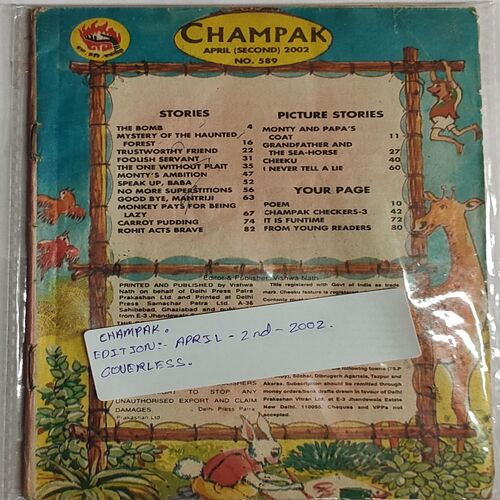 CHAMPAK
APRIL (SECOND) 2002
NO. 589
STORIES
THE BOMB 4
MYSTERY OF THE HAUNTED
FOREST 16
TRUSTWORTHY FRIEND 22
FOOLISH SERVANT 31
THE ONE WITHOUT PLAIT 35
MONTY'S AMBITION 47
SPEAK UP, BABA 52
NO MORE SUPERSTITIONS 56
GOOD BYE, MANTRIJI 63
MONKEY PAYS FOR BEING
LAZY 67
CARROT PUDDING 74
ROHIT ACTS BRAVE 82
PICTURE STORIES
MONTY AND PAPA'S
COAT 11
GRANDFATHER AND
THE SEA-HORSE 27
CHEEKU 40
I NEVER TELL A LIE 60
YOUR PAGE
POEM 10
CHAMPAK CHECKERS-3 42
IT IS FUNTIME 72
FROM YOUNG READERS 80
Editor & Publisher, Vishwa Nath
PRINTED AND PUBLISHED by Vishwa
Nath on behalf of Delhi Press Patra
Prakashan Ltd. and Printed at Delhi
Press Samachar Patra Ltd. A-36
Sahibabad, Ghaziabad and publis
from E-3 Jhandewala
Title registered with Govt of India as trade
mark. Cheeku feature is registered
CHAMPAK.
EDITION:- APRIL - 2nd - 2002.
COVERLESS.
TO STOP ANY
UNAUTHORISED EXPORT AND CLAIM
DAMAGES. Delhi Press Patra
Prakashan Ltd.
following towns
Silchar, Dibrugarh Agartala, Tezpur and
Subscription should be remitted through
money orders/bank drafts drawn in favour of Delhi
Prakashan Vitran Ltd. at E-3 Jhandewala Estate
New Delhi. 110055. Cheques and VPPs not
accepted.